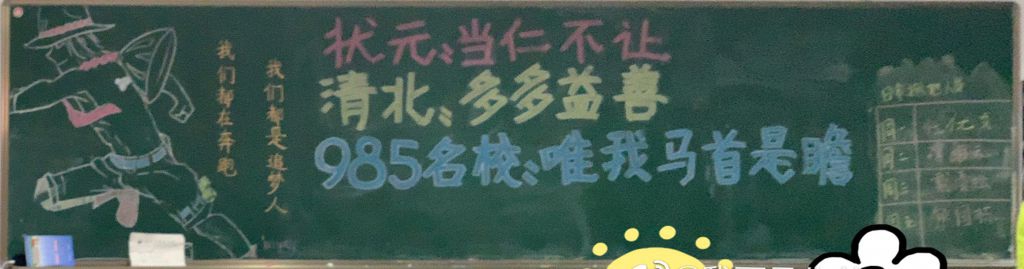 我们都在奔跑
我们都是追梦人
状元:当仁不让
清北:多多益善
985名校:唯我马首是瞻
周一
周二
周三